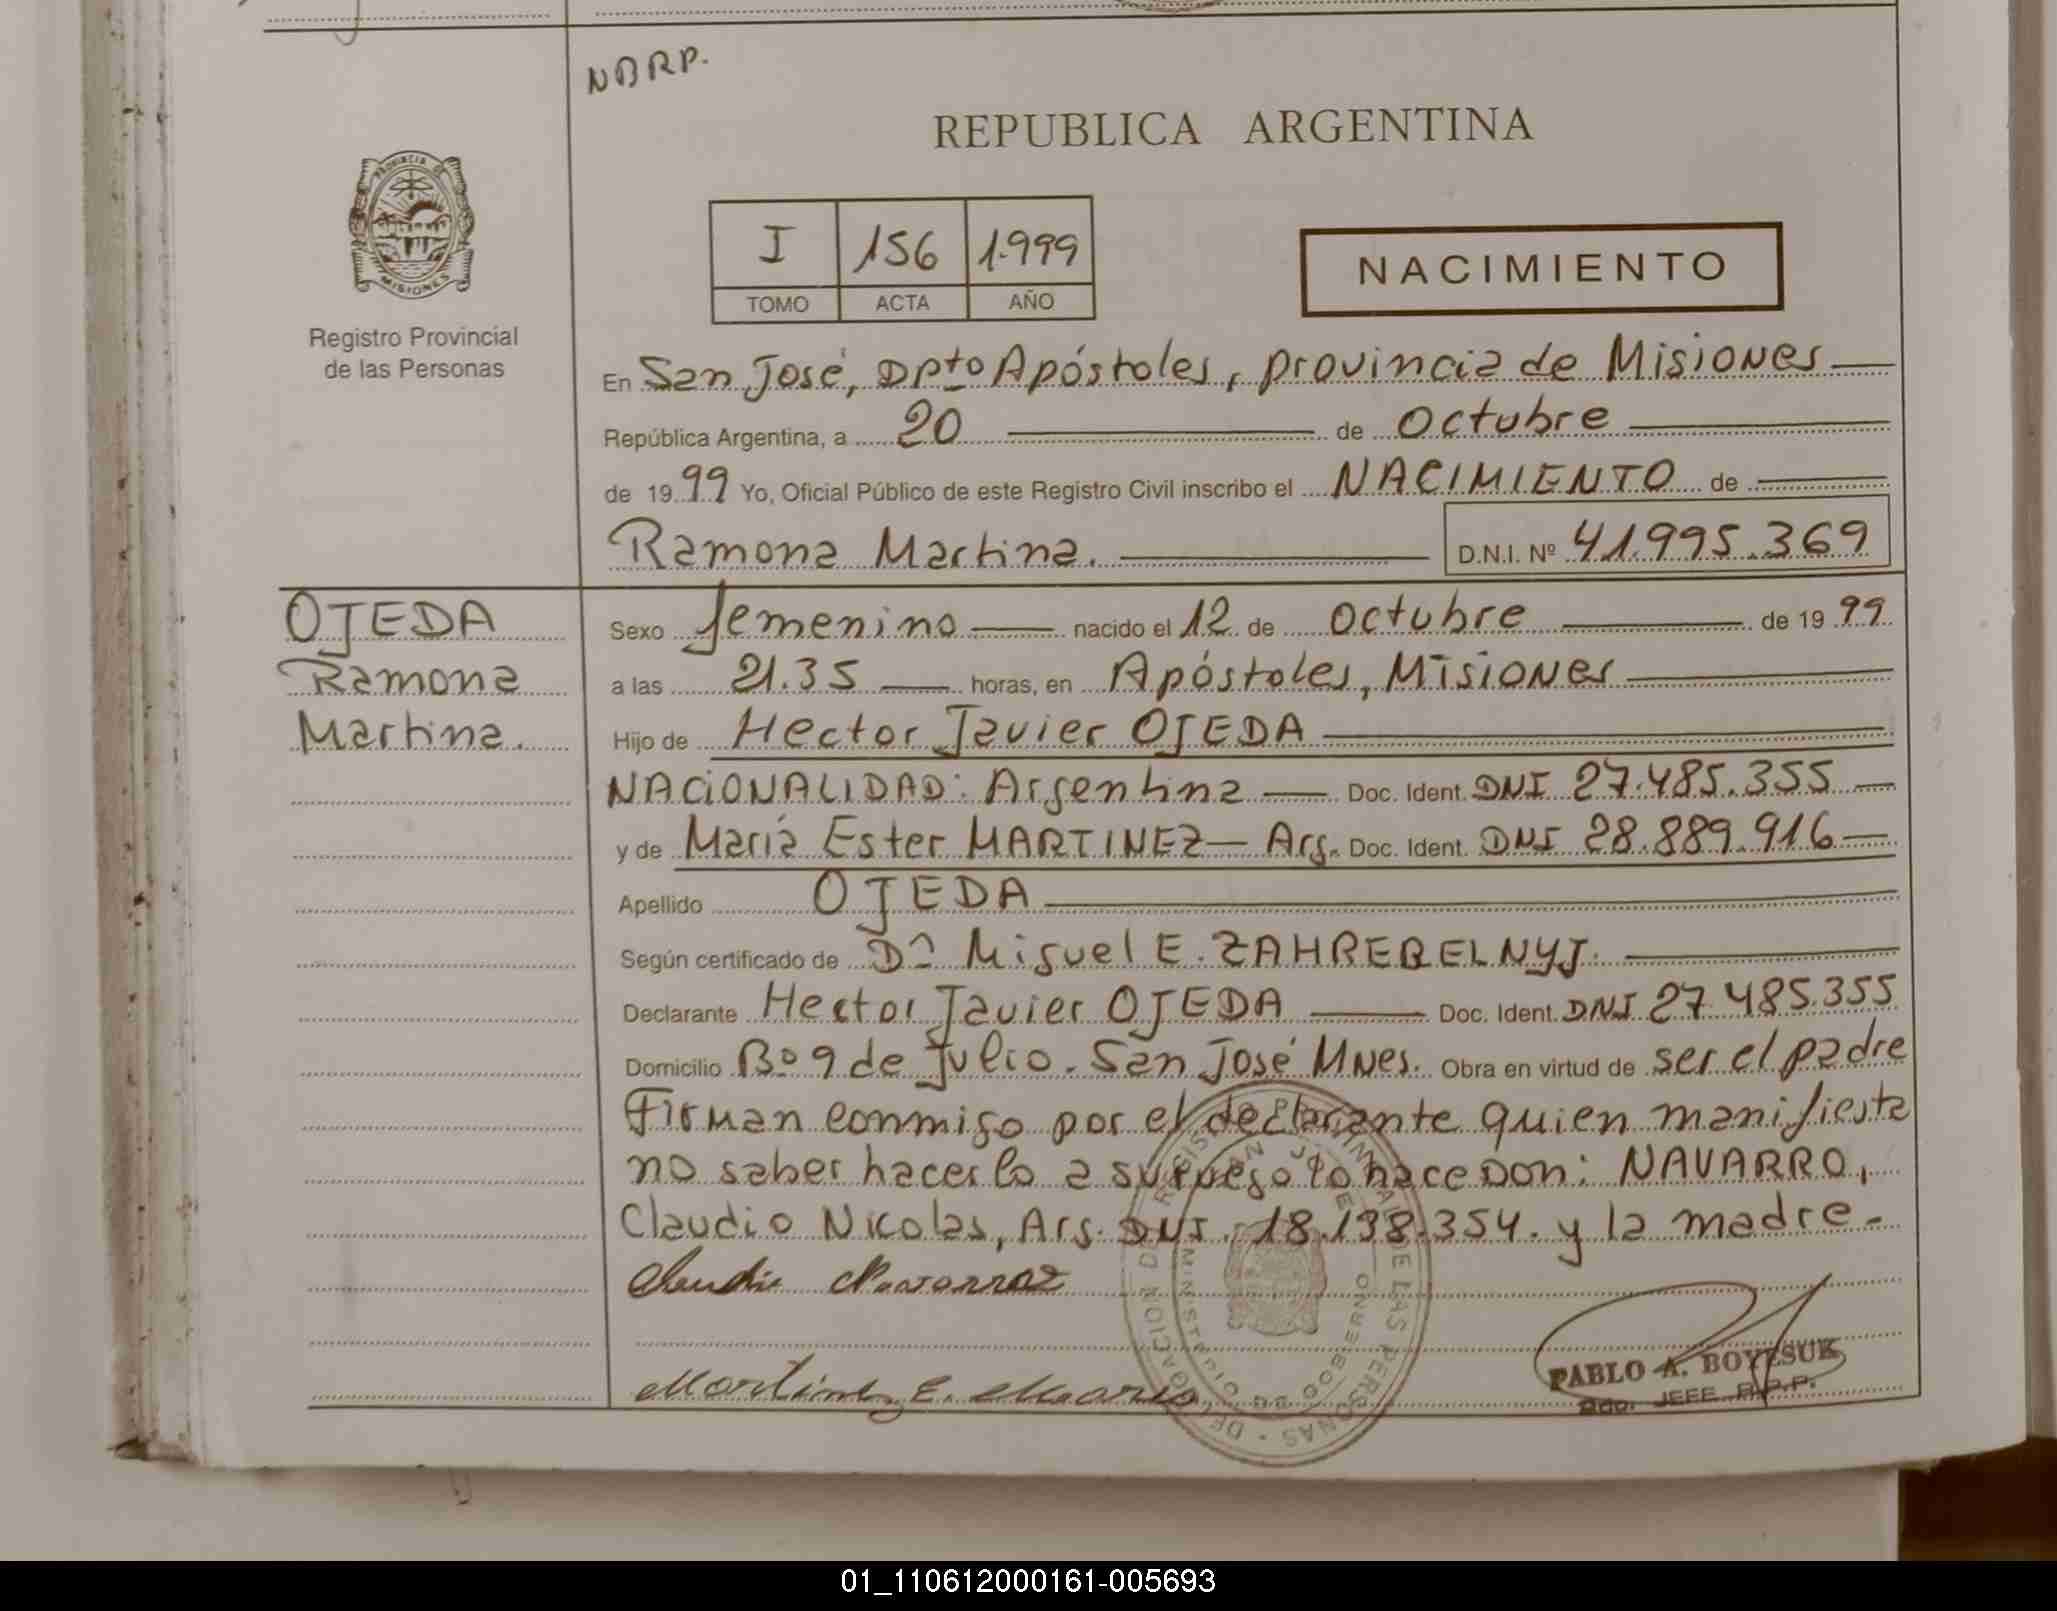 NBRP.
REPUBLICA ARGENTINA
PROVINCIA DE
MISIONES
Registro Provincial
de las Personas
I 156 1.999
TOMO ACTA AÑO
NACIMIENTO
En San José, Dpto Apóstoles, provincia de Misiones
República Argentina, a 20 de octubre
de 1999 Yo, Oficial Público de este Registro Civil inscribo el NACIMIENTO de
Ramona Martina. D.N.I. Nº 41.995.369
OJEDA
Ramona
Martina.
Sexo femenino nacido el 12 de octubre de 1999
a las 21.35 horas, en Apóstoles, Misiones
Hijo de Hector Javier OJEDA
NACIONALIDAD: Argentina Doc. Ident. DNI 27.485.355
y de María Ester MARTINEZ - Arg. Doc. Ident. DNI 28.889.916
Apellido OJEDA
Según certificado de Dr Miguel E. ZAHREBELNYJ.
Declarante Hector Javier OJEDA Doc. Ident. DNI 27.485.355
Domicilio Bo 9 de Julio. San José Mnes. Obra en virtud de ser el padre
Firman conmigo por el declarante quien manifiesta
no saber hacerlo a su ruego lo hace Don: NAVARRO,
Claudio Nicolas, Arg. DNI. 18.138.354. y la madre.
Claudio Navarro
Martinez E. Maria
PABLO A. BOYESUK
JEFE R.P.P.
01_110612000161-005693